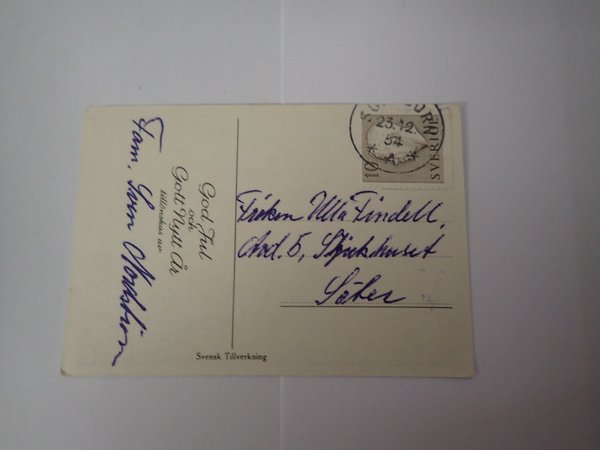 God Jul
och
Gott Nytt År
tillönskas av
Fam. Sven Nordström
Svensk Tillverkning
23.12.
54
* A *
10
SVERIGE
Fröken Ulla Lindell
Avd. 5, Sjukhuset
Säter